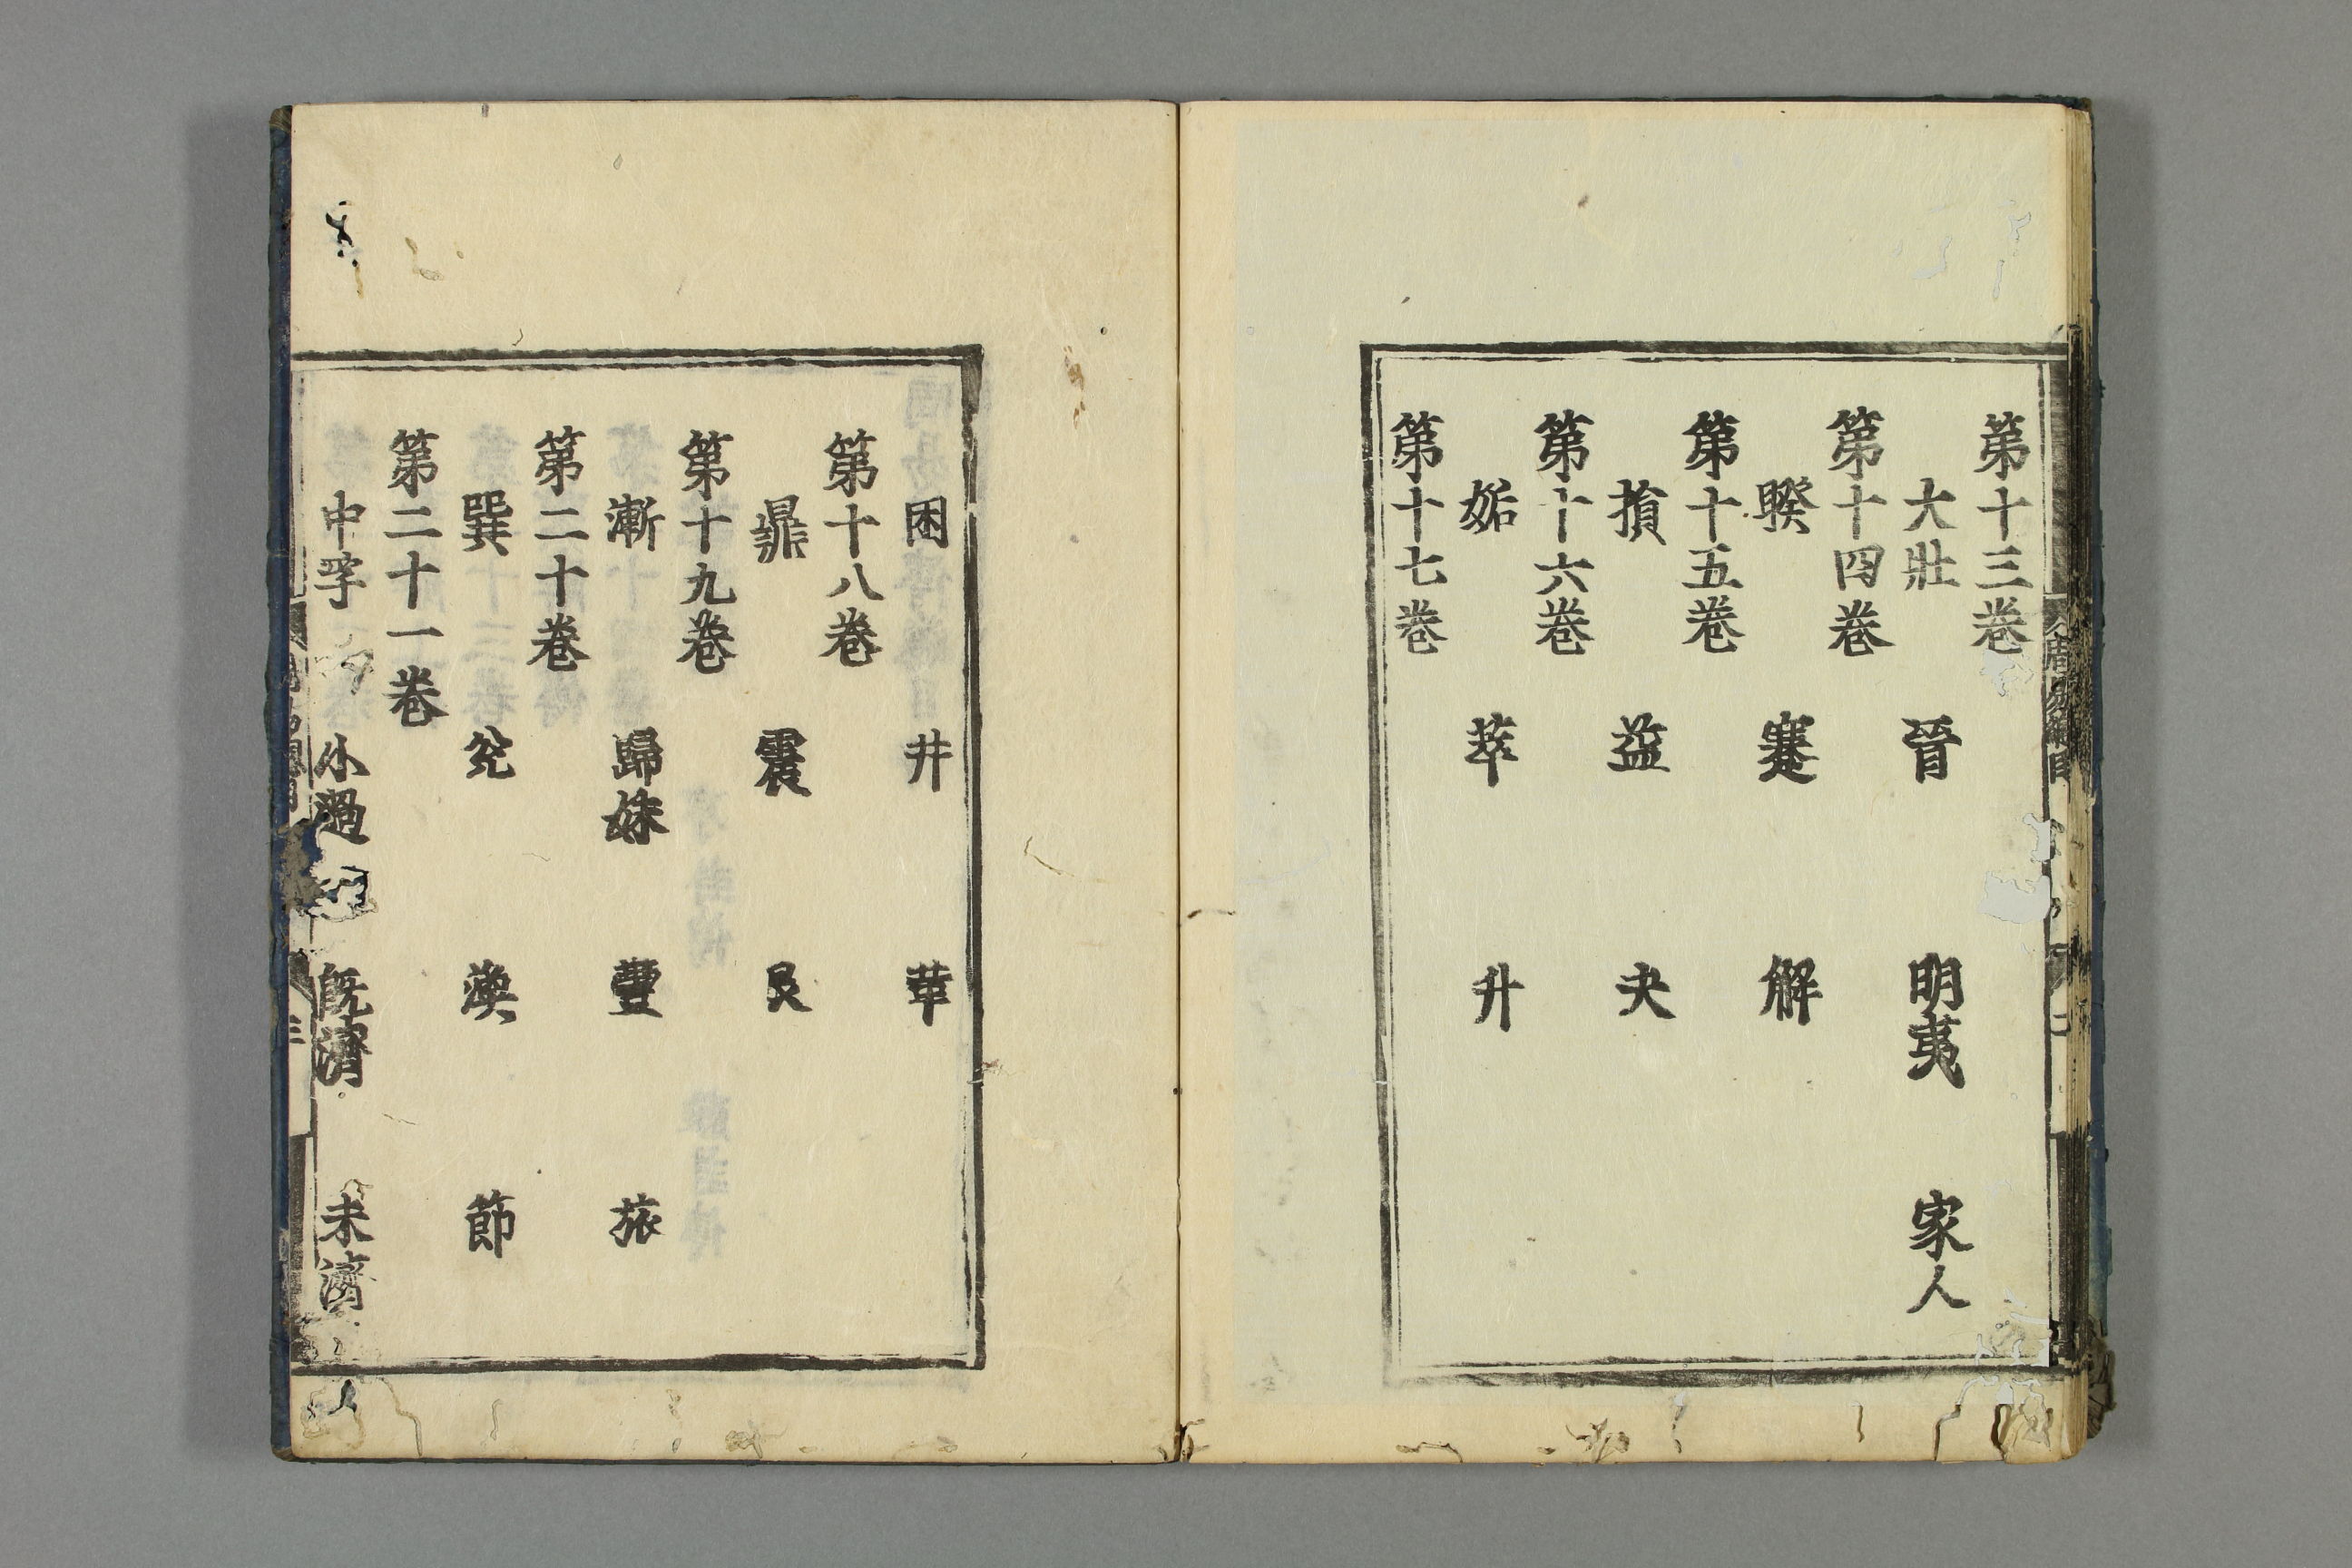 第十三卷
大壯 晉 明夷 家人
第十四卷
睽 蹇 解
第十五卷
損 益 夬
第十六卷
姤 萃 升
第十七卷
困 井 革
第十八卷
鼎 震 艮
第十九卷
漸 歸妹 豐 旅
第二十卷
巽 兌 渙 節
第二十一卷
中孚 小過 旣濟 未濟